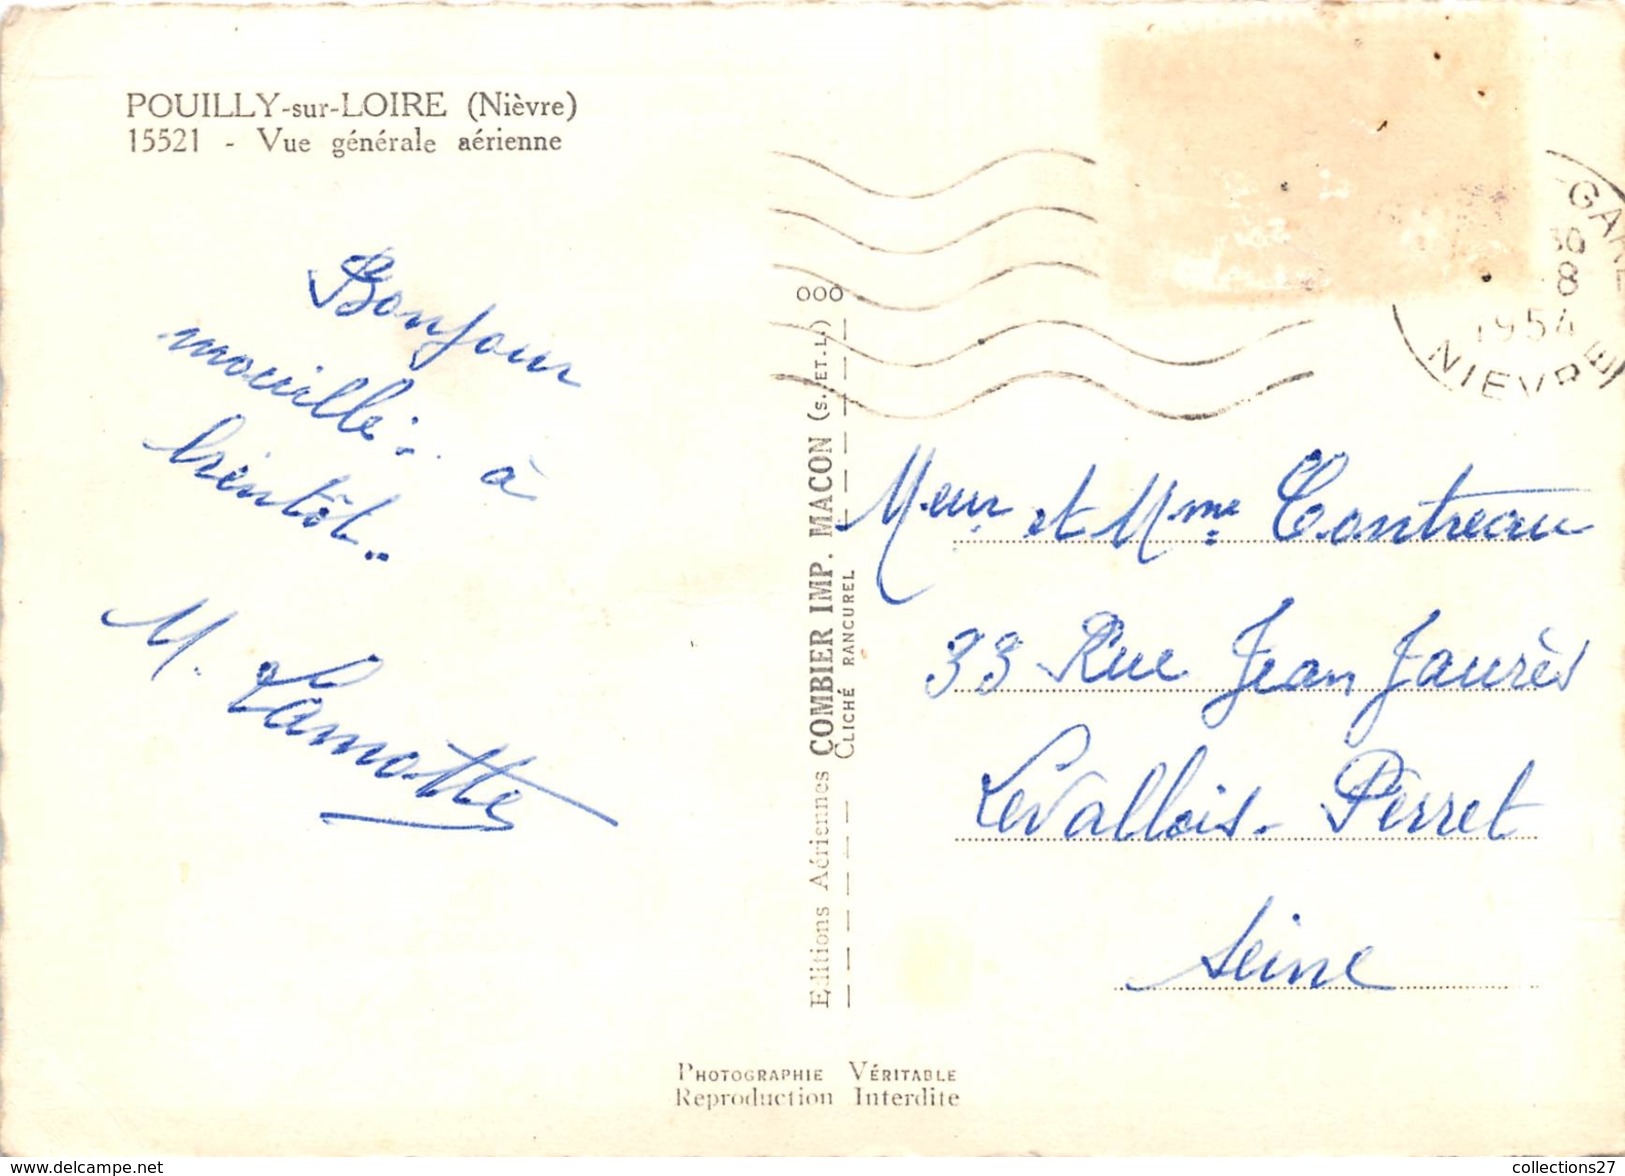 POUILLY-sur-LOIRE (Nièvre)
15521 - Vue générale aérienne
Bonjour
mouillé: à
bientôt..
M. Lamotte
GARE
30
8
1954
NIEVRE
000
Editions Aériennes COMBIER IMP. MACON (S. ET.L.)
CLICHÉ RANCUREL
Meur et Mme Contreau
33 Rue Jean Jaurès
Levallois-Perret
Seine
PHOTOGRAPHIE VÉRITABLE
Reproduction Interdite
www.delcampe.net
collections27